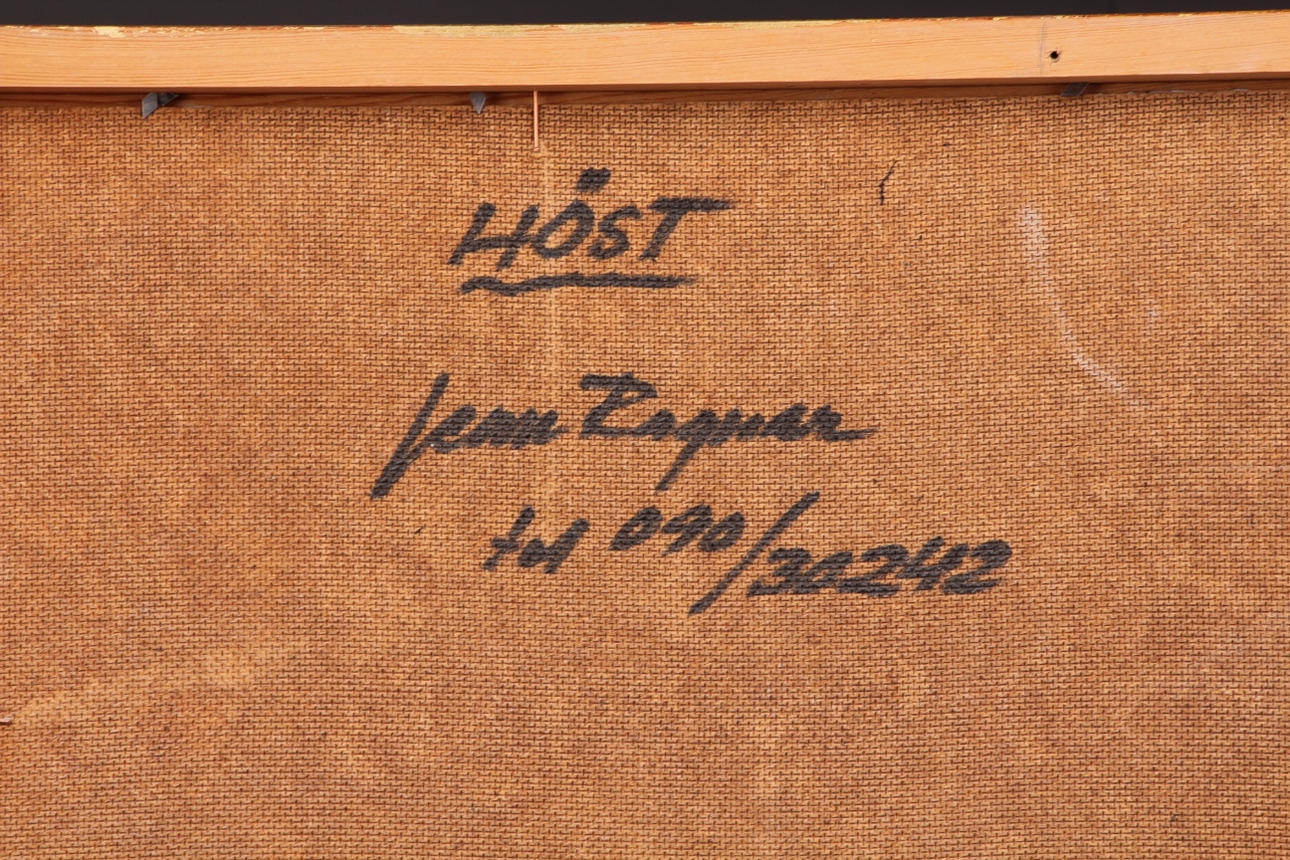 HÖST
Jean Ragnar
tel 090/30242